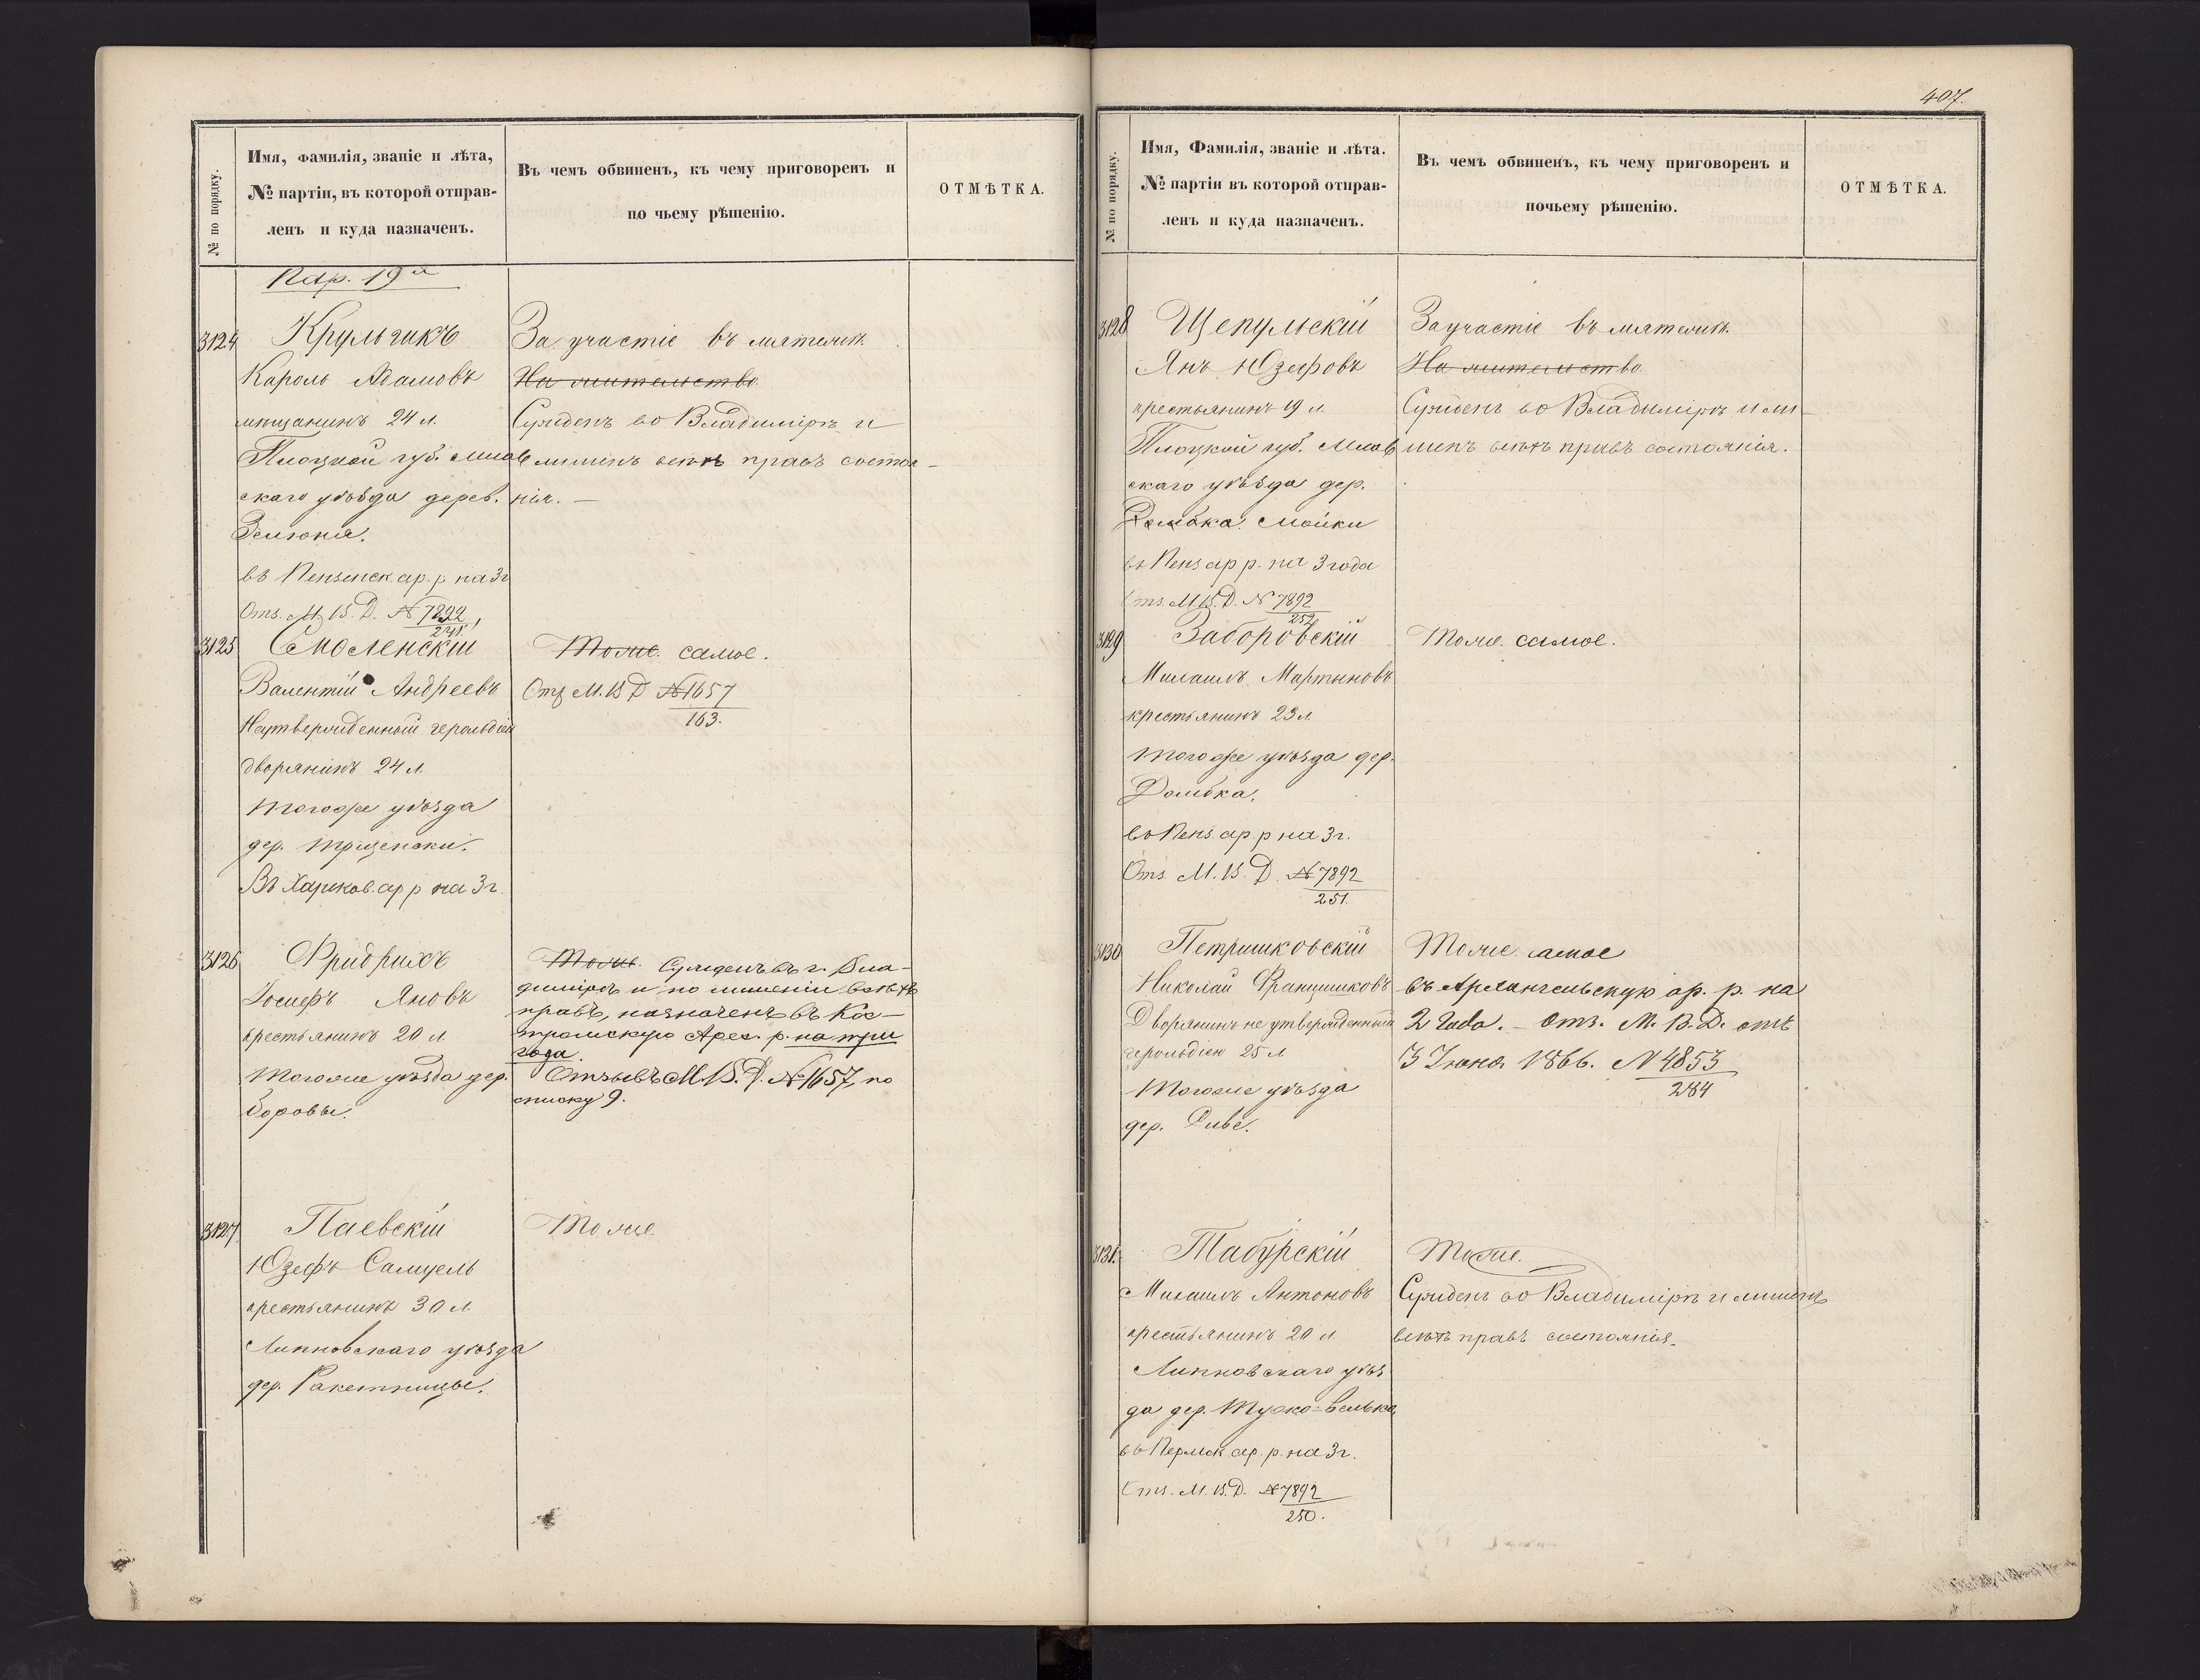 № по порядку.
Имя, фамилія, званіе и лѣта,
№ партіи, въ которой отправ-
ленъ и куда назначенъ.
Въ чемъ обвиненъ, къ чему приговоренъ и
по чьему рѣшенію.
ОТМѢТКА.
Пар. 19я
3124
Крульчикъ
Кароль Адамовъ
мѣщанинъ 24 л.
Плоцкой губ. Млав
скаго уѣзда дерев.
Зелюня.
въ Пензенск ар. р. на 3г
Отз. М. В. Д. № 7892
241
За участіе въ мятежѣ.
На жительство
Сужденъ во Владимірѣ и
лишенъ всѣхъ правъ состоя-
нія. —
3125
Смоленскій
Валентій Андреевъ
Неутвержденный герольдіей
дворянинъ 24 л.
Того же уѣзда
дер. Трщенски.
Въ Харьков. ар р на 3г.
Тоже самое.
Отз М. В Д № 1657
163.
3126
Фридрихъ
Іосифъ Яновъ
крестьянинъ 20 л.
Того же уѣзда дер.
боровы.
Тоже. Сужденъ въ г. Вла-
димірѣ и по лишеніи всѣхъ
правъ, назначенъ въ Кос-
тромскую Арес. р. на три
года.
Отзывъ М. В. Д. № 1657, по
списку 9.
3127
Паевскій
Юзефъ Самуель
крестьянинъ 30 л.
Липновскаго уѣзда
дер. Ракетницы.
Тоже
407.
№ по порядку.
Имя, Фамилія, званіе и лѣта.
№ партіи въ которой отправ-
ленъ и куда назначенъ.
Въ чемъ обвиненъ, къ чему приговоренъ и
почьему рѣшенію.
ОТМѢТКА.
3128
Щепульскій
Янъ Юзефовъ
крестьянинъ 19 л.
Плоцкой губ. Млав
скаго уѣзда дер.
Домбка. Мойки
въ Пенз ар р. на 3 года
Отз. М. В. Д. № 7892
252
За участіе въ мятежѣ.
На жительство
Сужденъ во Владимірѣ и ли-
шенъ всѣхъ правъ состоянія.
3129
Заборовскій
Михаилъ Мартыновъ
крестьянинъ 23 л
Того же уѣзда дер.
Домбка.
въ Пенз. ар р на 3г.
Отз М. В. Д. № 7892
251.
Тоже самое.
3130
Петрашковскій
Николай Францишковъ
Дворянинъ не утвержденный
герольдіею 25 л
Того же уѣзда
дер. Диве.
Тоже самое
въ Архангельскую ар. р. на
2 года. – Отз. М. В. Д. отъ
3 Іюня 1866. № 4853
284
3131.
Табурскій
Михаилъ Антоновъ
крестьянинъ 20 л
Липновскаго уѣз
да дер. Тухо-велька,
въ Пермск ар. р. на 3г.
Отз. М. В. Д. № 7892
250.
Тоже.
Сужденъ во Владимірѣ и лишенъ
всѣхъ правъ состоянія.